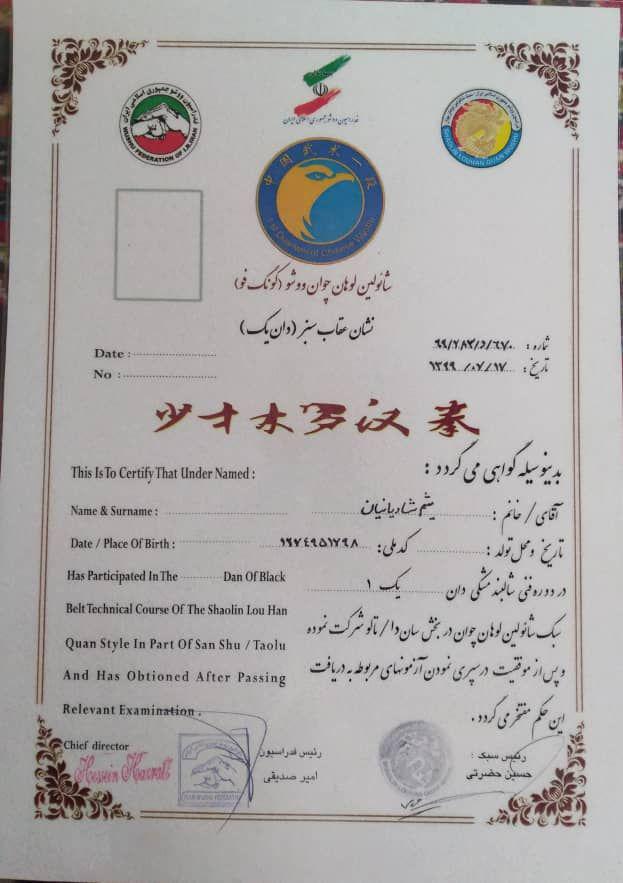 فدراسیون ووشو جمهوری اسلامی ایران
WUSHU FEDERATION OF I.R.IRAN
فدراسیون ووشو جمهوری اسلامی ایران
SHAOLIN LOUHAN QUAN WUSHU
中国武术一段
1st Duanwei of Chinese Wushu
شائولین لوهان چوان ووشو (کونگ فو)
نشان عقاب سبز (دان یک)
شماره :
تاریخ : ۱۳۹۹/۰۷/۱۷
Date :
No :
少林罗汉拳
This Is To Certify That Under Named :
بدینوسیله گواهی می گردد :
Name & Surname :
آقای / خانم : میثم شادیانیان
Date / Place Of Birth :
تاریخ و محل تولد : کد ملی:
Has Participated In The Dan Of Black
در دوره فنی شالبند مشکی دان یک ۱
Belt Technical Course Of The Shaolin Lou Han
سبک شائولین لوهان چوان در بخش سان دا / تالو شرکت نموده
Quan Style In Part Of San Shu / Taolu
و پس از موفقیت در سپری نمودن آزمونهای مربوطه به دریافت
And Has Obtioned After Passing
این حکم مفتخر می گردد .
Relevant Examination .
Chief director
Hossein Hazrati
رئیس فدراسیون
امیر صدیقی
رئیس سبک :
حسین حضرتی